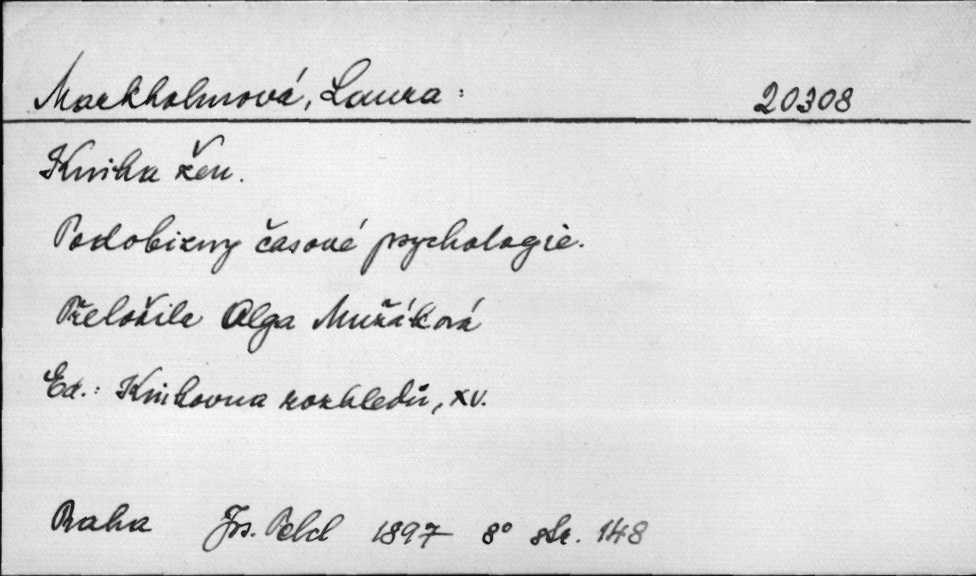 Markholmová, Laura: 20308
Kniha žen.
Podobizny časové psychologie.
Přeložila Olga Mužáková
Ed.: Knihovna rozhledů, XV.
Praha Jos. Pelcl 1897 8° str. 148